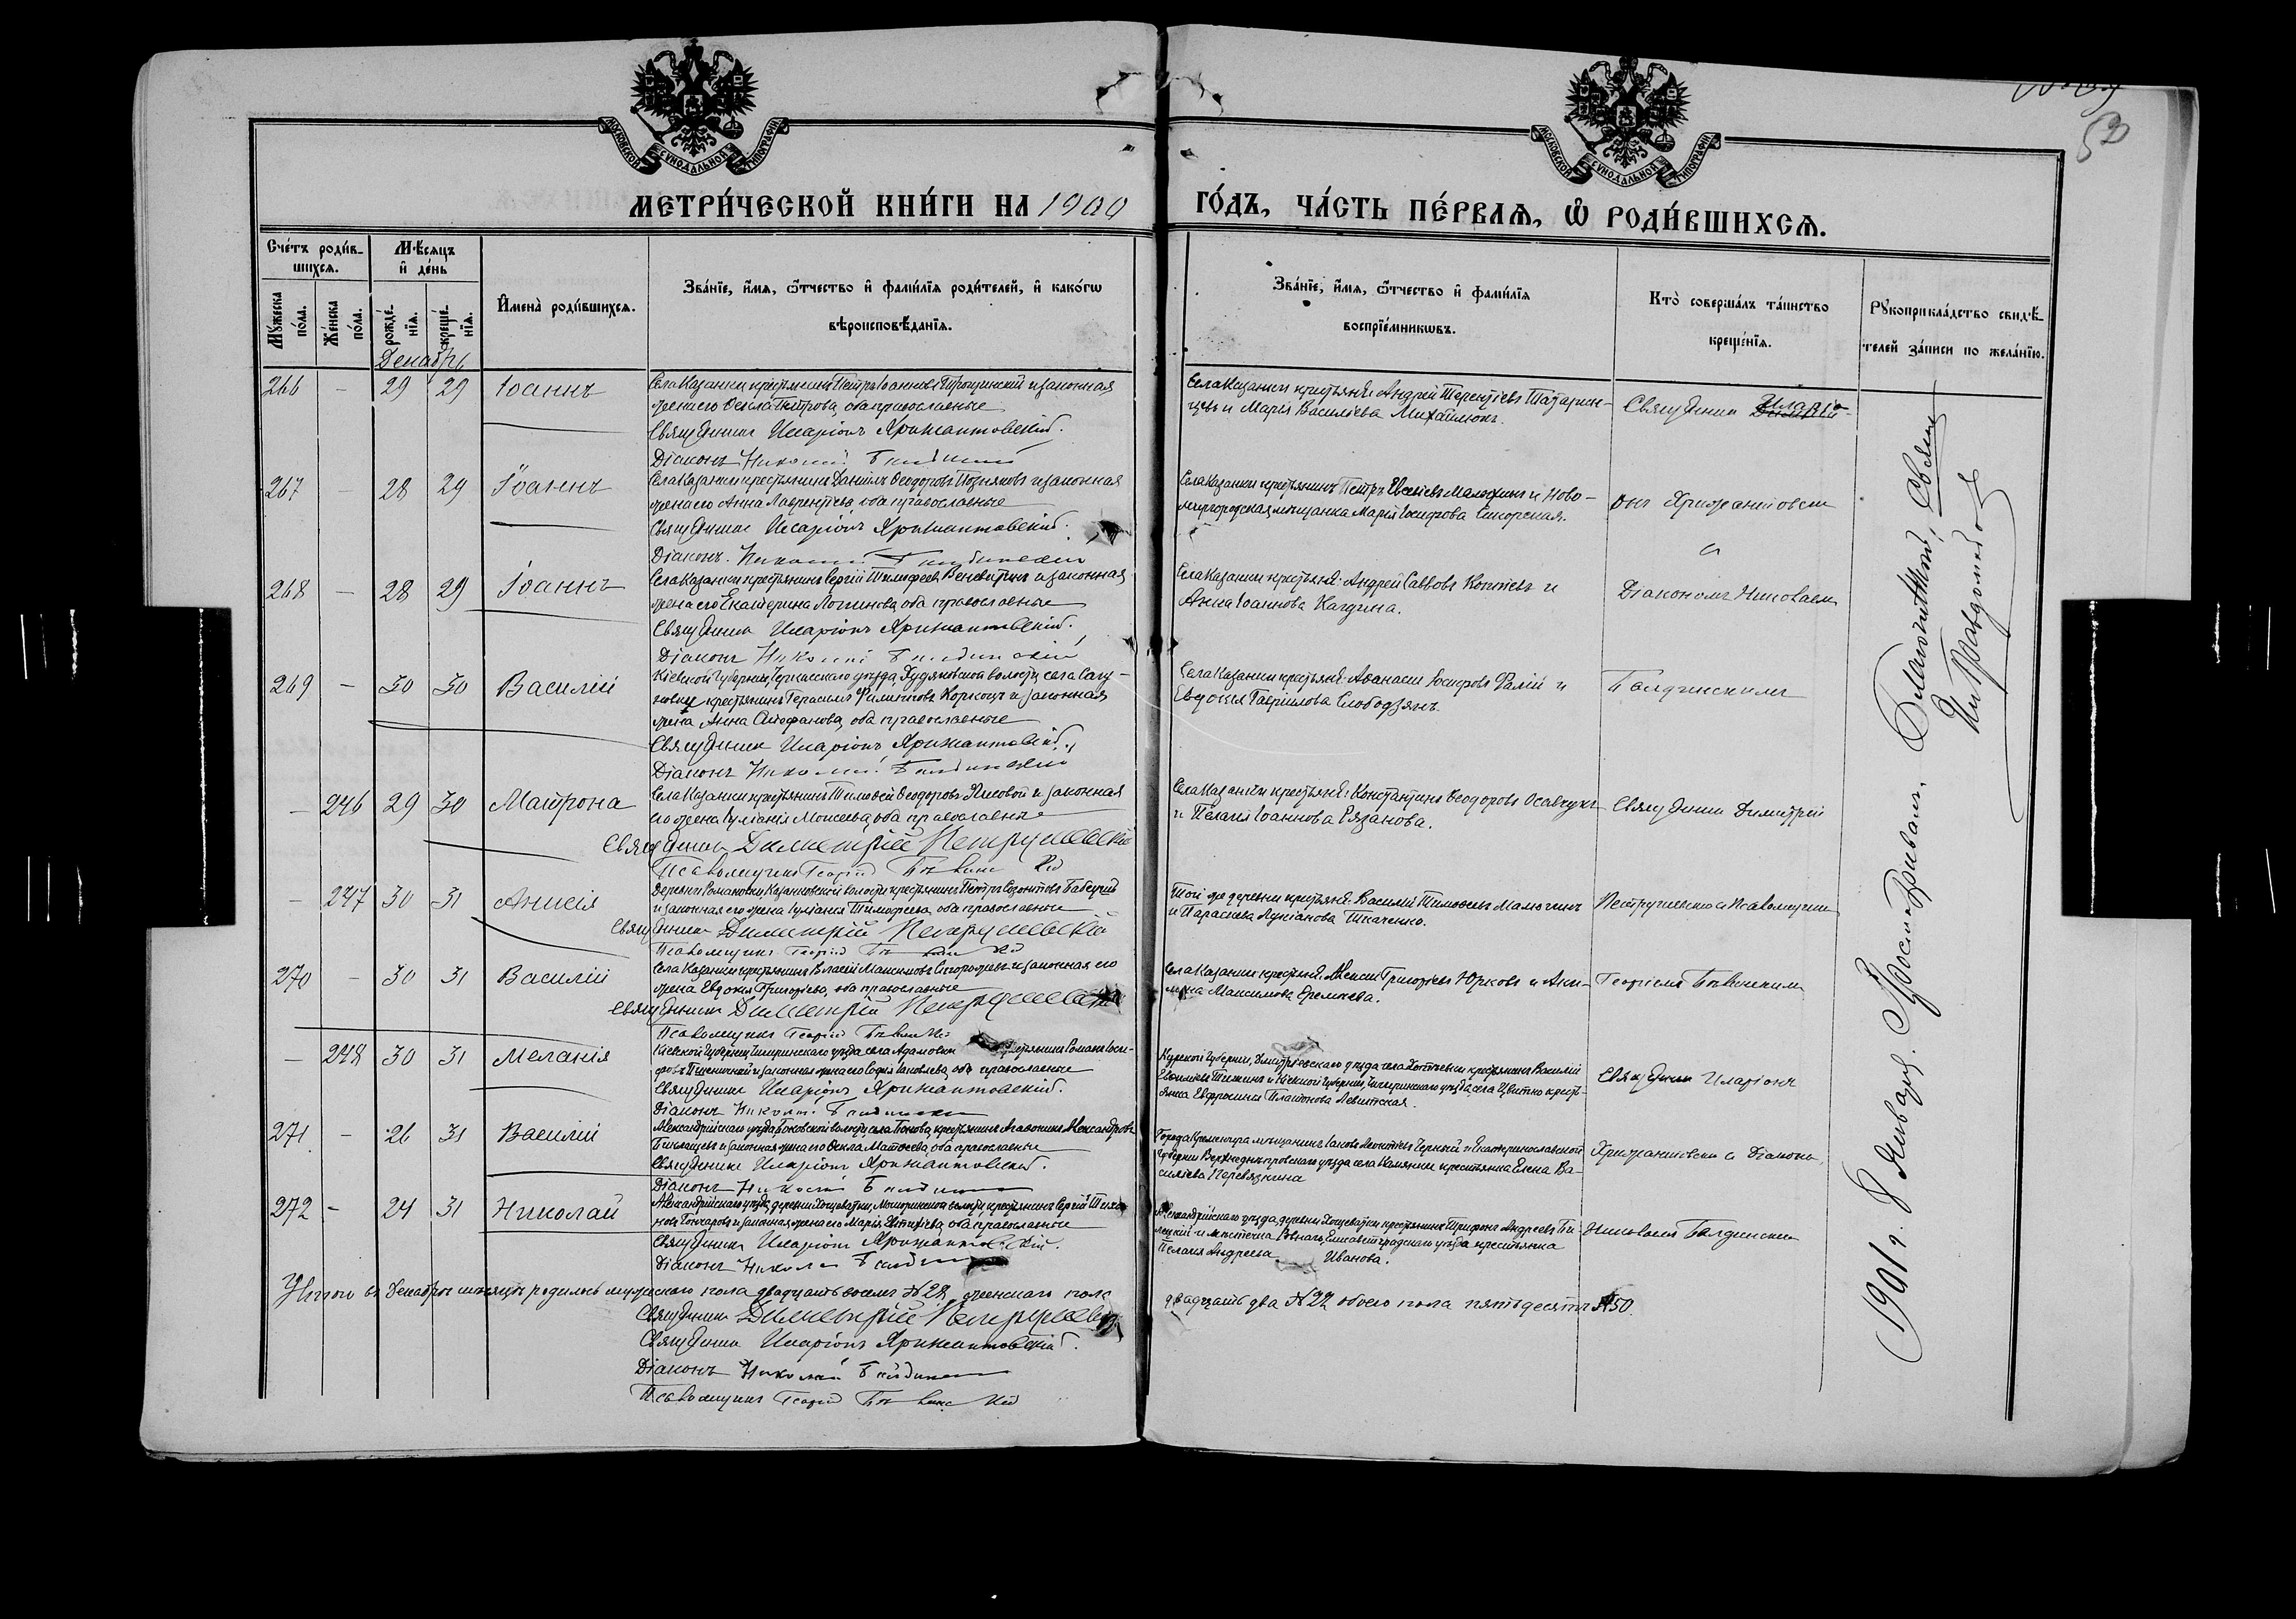 МОСКОВСКОЙ СѴНОДАЛЬНОЙ ТИПОГРАФІИ
МОСКОВСКОЙ СѴНОДАЛЬНОЙ ТИПОГРАФІИ
52
МЕТРИ́ЧЕСКОЙ КНИ́ГИ НА 1900 ГО́ДЪ, ЧА́СТЬ ПЕ́РВАѦ, Ѡ҆ РОДИ́ВШИХСѦ.
Сче́тъ роди́в-
шихсѧ.
Мꙋ́жеска
по́ла.
Же́нска
по́ла.
Мѣ́сѧцъ
и҆ де́нь
рожде́-
нїѧ.
креще́-
нїѧ.
Декабрь
И҆мена̀ роди́вшихсѧ.
Зва́нїе, и҆́мѧ, ѻ҆́тчество и҆ фами́лїѧ роди́телей, и҆ како́гѡ
вѣроисповѣ́данїѧ.
Зва́нїе, и҆́мѧ, ѻ҆́тчество и҆ фами́лїѧ
воспрїе́мникѡвъ.
Кто̀ соверша́лъ та́инство
креще́нїѧ.
Рꙋкоприкла́дство свидѣ́-
телей за́писи по жела́нїю.
266 - 29 29 Іоаннъ
Села Казанки крестьянинъ Петръ Іоанновъ и законная
жена его Ѳекла Петрова, оба православные
Священникъ Иларіонъ Крижантовскій.
Діаконъ Николай
Села Казанки крестьяне: Андрей Терентіевъ Татарин-
цевъ и Марія Василіева Михайлюкъ.
Священникъ Иларіо-
267 - 28 29 Іоаннъ
Села Казанки крестьянинъ Даніилъ Ѳеодоровъ Позняковъ и законная
жена его Анна Лаврентіева, оба православные
Священникъ Иларіонъ Крижантовскій.
Діаконъ Николай
Села Казанки крестьянинъ Петръ Евсевіевъ Малохинъ и Ново-
миргородская мѣщанка Марія Іосифова Сикорская.
онъ Крижантовскій
с
268 - 28 29 Іоаннъ
Села Казанки крестьянинъ Сергій Тимофеевъ Веневитинъ и законная
жена его Екатерина Логинова, оба православные
Священникъ Иларіонъ Крижантовскій.
Діаконъ Николай
Села Казанки крестьяне: Андрей Савовъ Коптевъ и
Анна Іоаннова Калдина.
Діакономъ Николаемъ
269 - 30 30 Василій
Кіевской губерніи, Черкасскаго уѣзда, Худяковской волости, села Сагу-
новки крестьянинъ Герасимъ Филипповъ и законная
жена Анна Стефанова, оба православные
Священникъ Иларіонъ Крижантовскій.
Діаконъ Николай
Села Казанки крестьяне: Аѳанасій Іосифовъ Фалій и
Евдокія Гавріилова Слободзянъ.
Балдинскимъ
- 246 29 30 Матрона
Села Казанки крестьянинъ Тимоѳей Ѳеодоровъ и законная
его жена Іуліанія Моисеева, оба православные
Священникъ Димитрій Петрушевскій
Псаломщикъ Георгій
Села Казанки крестьяне: Константинъ Ѳеодоровъ Осавчукъ
и Пелагія Іоаннова Рязанова.
Священникъ Димитрій
- 247 30 31 Анисія
Деревни Романовки, Казанковской волости крестьянинъ Петръ
и законная его жена Іуліанія Тимофеева, оба православные
Священникъ Димитрій Петрушевскій
Псаломщикъ Георгій
Той же деревни крестьяне: Василій Тимофеевъ Малютинъ
и Параскева Лукіанова Ткаченко.
Петрушевскій съ Псаломщикомъ
270 - 30 31 Василій
Села Казанки крестьянинъ Власій Максимовъ и законная его
жена Евдокія Григорьева, оба православные
Священникъ Димитрій Петрушевскій
Псаломщикъ Георгій
Села Казанки крестьяне: Алексій Григоріевъ Юрковъ и Аки-
лина Максимова Еремеева.
Георгіемъ
- 248 30 31 Меланія
Кіевской губерніи, Чигиринскаго уѣзда села Адамовки крестьянинъ Романъ Іоси-
фовъ Пшеничной и законная жена его Софія Іаковлева, оба православные
Священникъ Иларіонъ Крижантовскій.
Діаконъ Николай
Курской губерніи, Дмитріевскаго уѣзда села крестьянинъ Василій
и Кіевской губерніи, Чигиринскаго уѣзда, села Цвѣтно кресть-
янка Евфросинія Платонова Левитская.
Священникъ Иларіонъ
271 - 26 31 Василій
Александрійскаго уѣзда, волости, села крестьянинъ Агаѳоникъ Александровъ
и законная жена его Ѳекла Матѳеева, оба православные
Священникъ Иларіонъ Крижантовскій.
Діаконъ Николай
Города Кременчуга мѣщанинъ Іаковъ Леонтіевъ Черный и Екатеринославской
губерніи Верхнеднѣпровскаго уѣзда села крестьянка Елена Ва-
силіева Перевязкина
Крижантовскій съ Діаконо
272 - 24 31 Николай
Александрійскаго уѣзда, деревни волости, крестьянинъ Сергій Тихо-
новъ Гончаровъ и законная жена его Марія, оба православные
Священникъ Иларіонъ Крижантовскій.
Діаконъ Николай
Александрійскаго уѣзда, деревни крестьянинъ Трифонъ Андреевъ Би-
лецкій и мѣстечка Елисаветградскаго уѣзда крестьянка
Пелагія Андреева Иванова.
Николаемъ Балдинскимъ
Итого въ Декабрѣ мѣсяцѣ родилось мужескаго пола двадцать восемь № 28, женскаго пола двадцать два № 22 обоего пола пятьдесятъ № 50.
Священникъ Димитрій Петрушевскій
Священникъ Иларіонъ Крижантовскій.
Діаконъ Николай
Псаломщикъ Георгій
1901 г. Января. Просматривалъ, Благочинный, Свящ